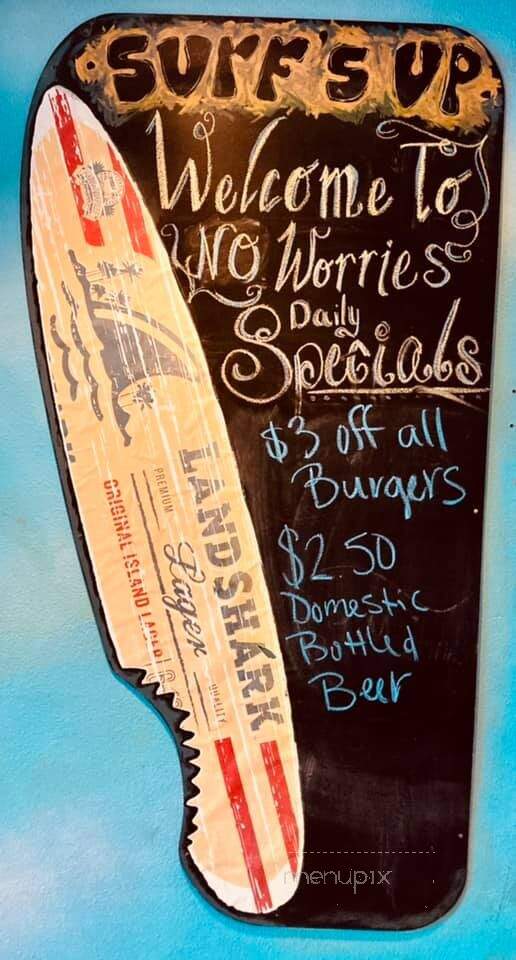 SURF'S UP
Welcome To
NO Worries
Daily
Specials
$3 off all
Burgers
$2.50
Domestic
Bottled
Beer
LANDSHARK
PREMIUM
Lager
QUALITY
ORIGINAL ISLAND LAGER
menupix